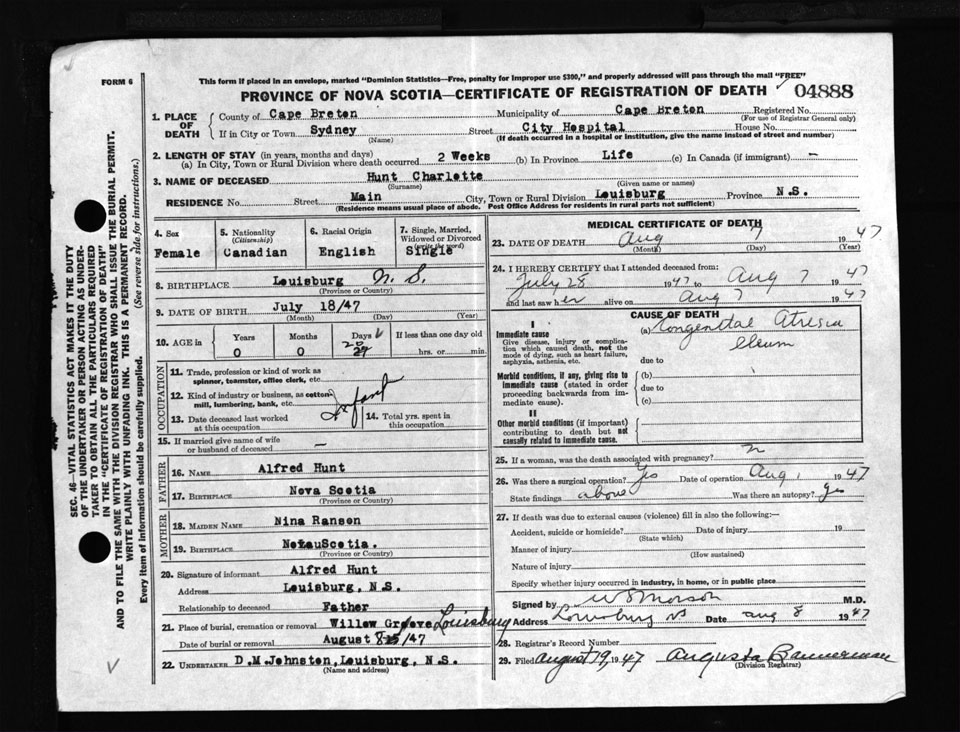 FORM 6
This form if placed in an envelope, marked "Dominion Statistics—Free, penalty for improper use $300," and properly addressed will pass through the mail "FREE"
PROVINCE OF NOVA SCOTIA—CERTIFICATE OF REGISTRATION OF DEATH 04888
1. PLACE OF DEATH County of Cape Breton Municipality of Cape Breton Registered No.
(For use of Registrar General only)
If in City or Town Sydney Street City Hospital House No.
(Name) (If death occurred in a hospital or institution, give the name instead of street and number)
2. LENGTH OF STAY (in years, months and days)
(a) In City, Town or Rural Division where death occurred 2 Weeks (b) In Province Life (c) In Canada (if immigrant) —
3. NAME OF DECEASED Hunt Charlotte
(Surname) (Given name or names)
RESIDENCE No. Street Main City, Town or Rural Division Louisburg Province N.S.
(Residence means usual place of abode. Post Office Address for residents in rural parts not sufficient)
4. Sex 5. Nationality (Citizenship) 6. Racial Origin 7. Single, Married, Widowed or Divorced (write the word)
Female Canadian English Single
8. BIRTHPLACE Louisburg N.S.
(Province or Country)
9. DATE OF BIRTH July 18/47
(Month) (Day) (Year)
10. AGE in Years Months Days If less than one day old
0 0 20 hrs. or min.
OCCUPATION
11. Trade, profession or kind of work as spinner, teamster, office clerk, etc.
12. Kind of industry or business, as cotton mill, lumbering, bank, etc. Infant
13. Date deceased last worked at this occupation 14. Total yrs. spent in this occupation
15. If married give name of wife or husband of deceased —
FATHER
16. NAME Alfred Hunt
17. BIRTHPLACE Nova Scotia
(Province or Country)
MOTHER
18. MAIDEN NAME Nina Ranson
19. BIRTHPLACE
(Province or Country)
20. Signature of informant Alfred Hunt
Address Louisburg, N.S.
Relationship to deceased Father
21. Place of burial, cremation or removal Willow Grove Louisburg
Date of burial or removal August 8/47
22. UNDERTAKER D.M.Johnston, Louisburg, N.S.
(Name and address)
MEDICAL CERTIFICATE OF DEATH
23. DATE OF DEATH Aug 7 1947
(Month) (Day) (Year)
24. I HEREBY CERTIFY that I attended deceased from:
July 28 1947 to Aug 7 1947
and last saw her alive on Aug 7 1947
CAUSE OF DEATH
I
Immediate cause (a) Congenital Atresia
Give disease, injury or complication which caused death, not the mode of dying, such as heart failure, asphyxia, asthenia, etc. Ileum
due to
Morbid conditions, if any, giving rise to immediate cause (stated in order proceeding backwards from immediate cause). (b)
due to
(c)
II
Other morbid conditions (if important) contributing to death but not causally related to immediate cause.
25. If a woman, was the death associated with pregnancy?
26. Was there a surgical operation? Yes Date of operation Aug 1 1947
State findings above Was there an autopsy? yes
27. If death was due to external causes (violence) fill in also the following:—
Accident, suicide or homicide? Date of injury 19
(State which)
Manner of injury
(How sustained)
Nature of injury
Specify whether injury occurred in industry, in home, or in public place
Signed by W S Morson M.D.
Address Louisburg NS Date Aug 8 1947
28. Registrar's Record Number
29. Filed August 19, 1947 Augusta Bannerman
(Division Registrar)
SEC. 46—VITAL STATISTICS ACT MAKES IT THE DUTY
OF THE UNDERTAKER OR PERSON ACTING AS UNDERTAKER TO OBTAIN ALL THE PARTICULARS REQUIRED
IN THE "CERTIFICATE OF REGISTRATION OF DEATH"
AND TO FILE THE SAME WITH THE DIVISION REGISTRAR WHO SHALL ISSUE THE BURIAL PERMIT.
WRITE PLAINLY WITH UNFADING INK. THIS IS A PERMANENT RECORD.
Every item of information should be carefully supplied. (See reverse side for instructions.)